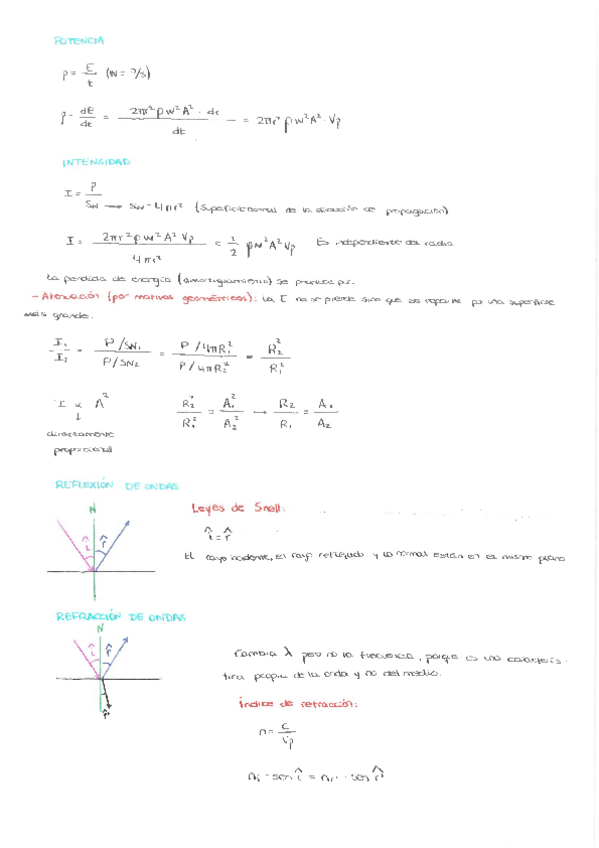 POTENCIA
P = E/t (W = J/s)
P = dE/dt = 2πr² ρ w² A² · dr / dt = 2πr² ρ w² A² · Vp
INTENSIDAD
I = P/SN → SN = 4πr² (superficie normal de la dirección de propagación)
I = 2πr² ρ w² A² Vp / 4πr² = 1/2 ρ w² A² Vp Es independiente del radio
La perdida de energía (amortiguamiento) se produce por:
- Atenuación (por motivos geométricos): La E no se pierde sino que se reparte por una superficie
más grande.
I₁/I₂ = P/SN₁ / P/SN₂ = P/4πR₁² / P/4πR₂² = R₂²/R₁²
I α A² R₂²/R₁² = A₁²/A₂² → R₂/R₁ = A₁/A₂
↓
directamente
proporcional
REFLEXIÓN DE ONDAS
N
î r̂
Leyes de Snell:
î = r̂
El rayo incidente, el rayo reflejado y la normal están en el mismo plano
REFRACCIÓN DE ONDAS
N
î r̂
r̂'
Cambia λ pero no la frecuencia, porque es una caracterís-
tica propia de la onda y no del medio.
Índice de refracción:
n = c/Vp
nᵢ · sen î = nᵣ · sen r̂'